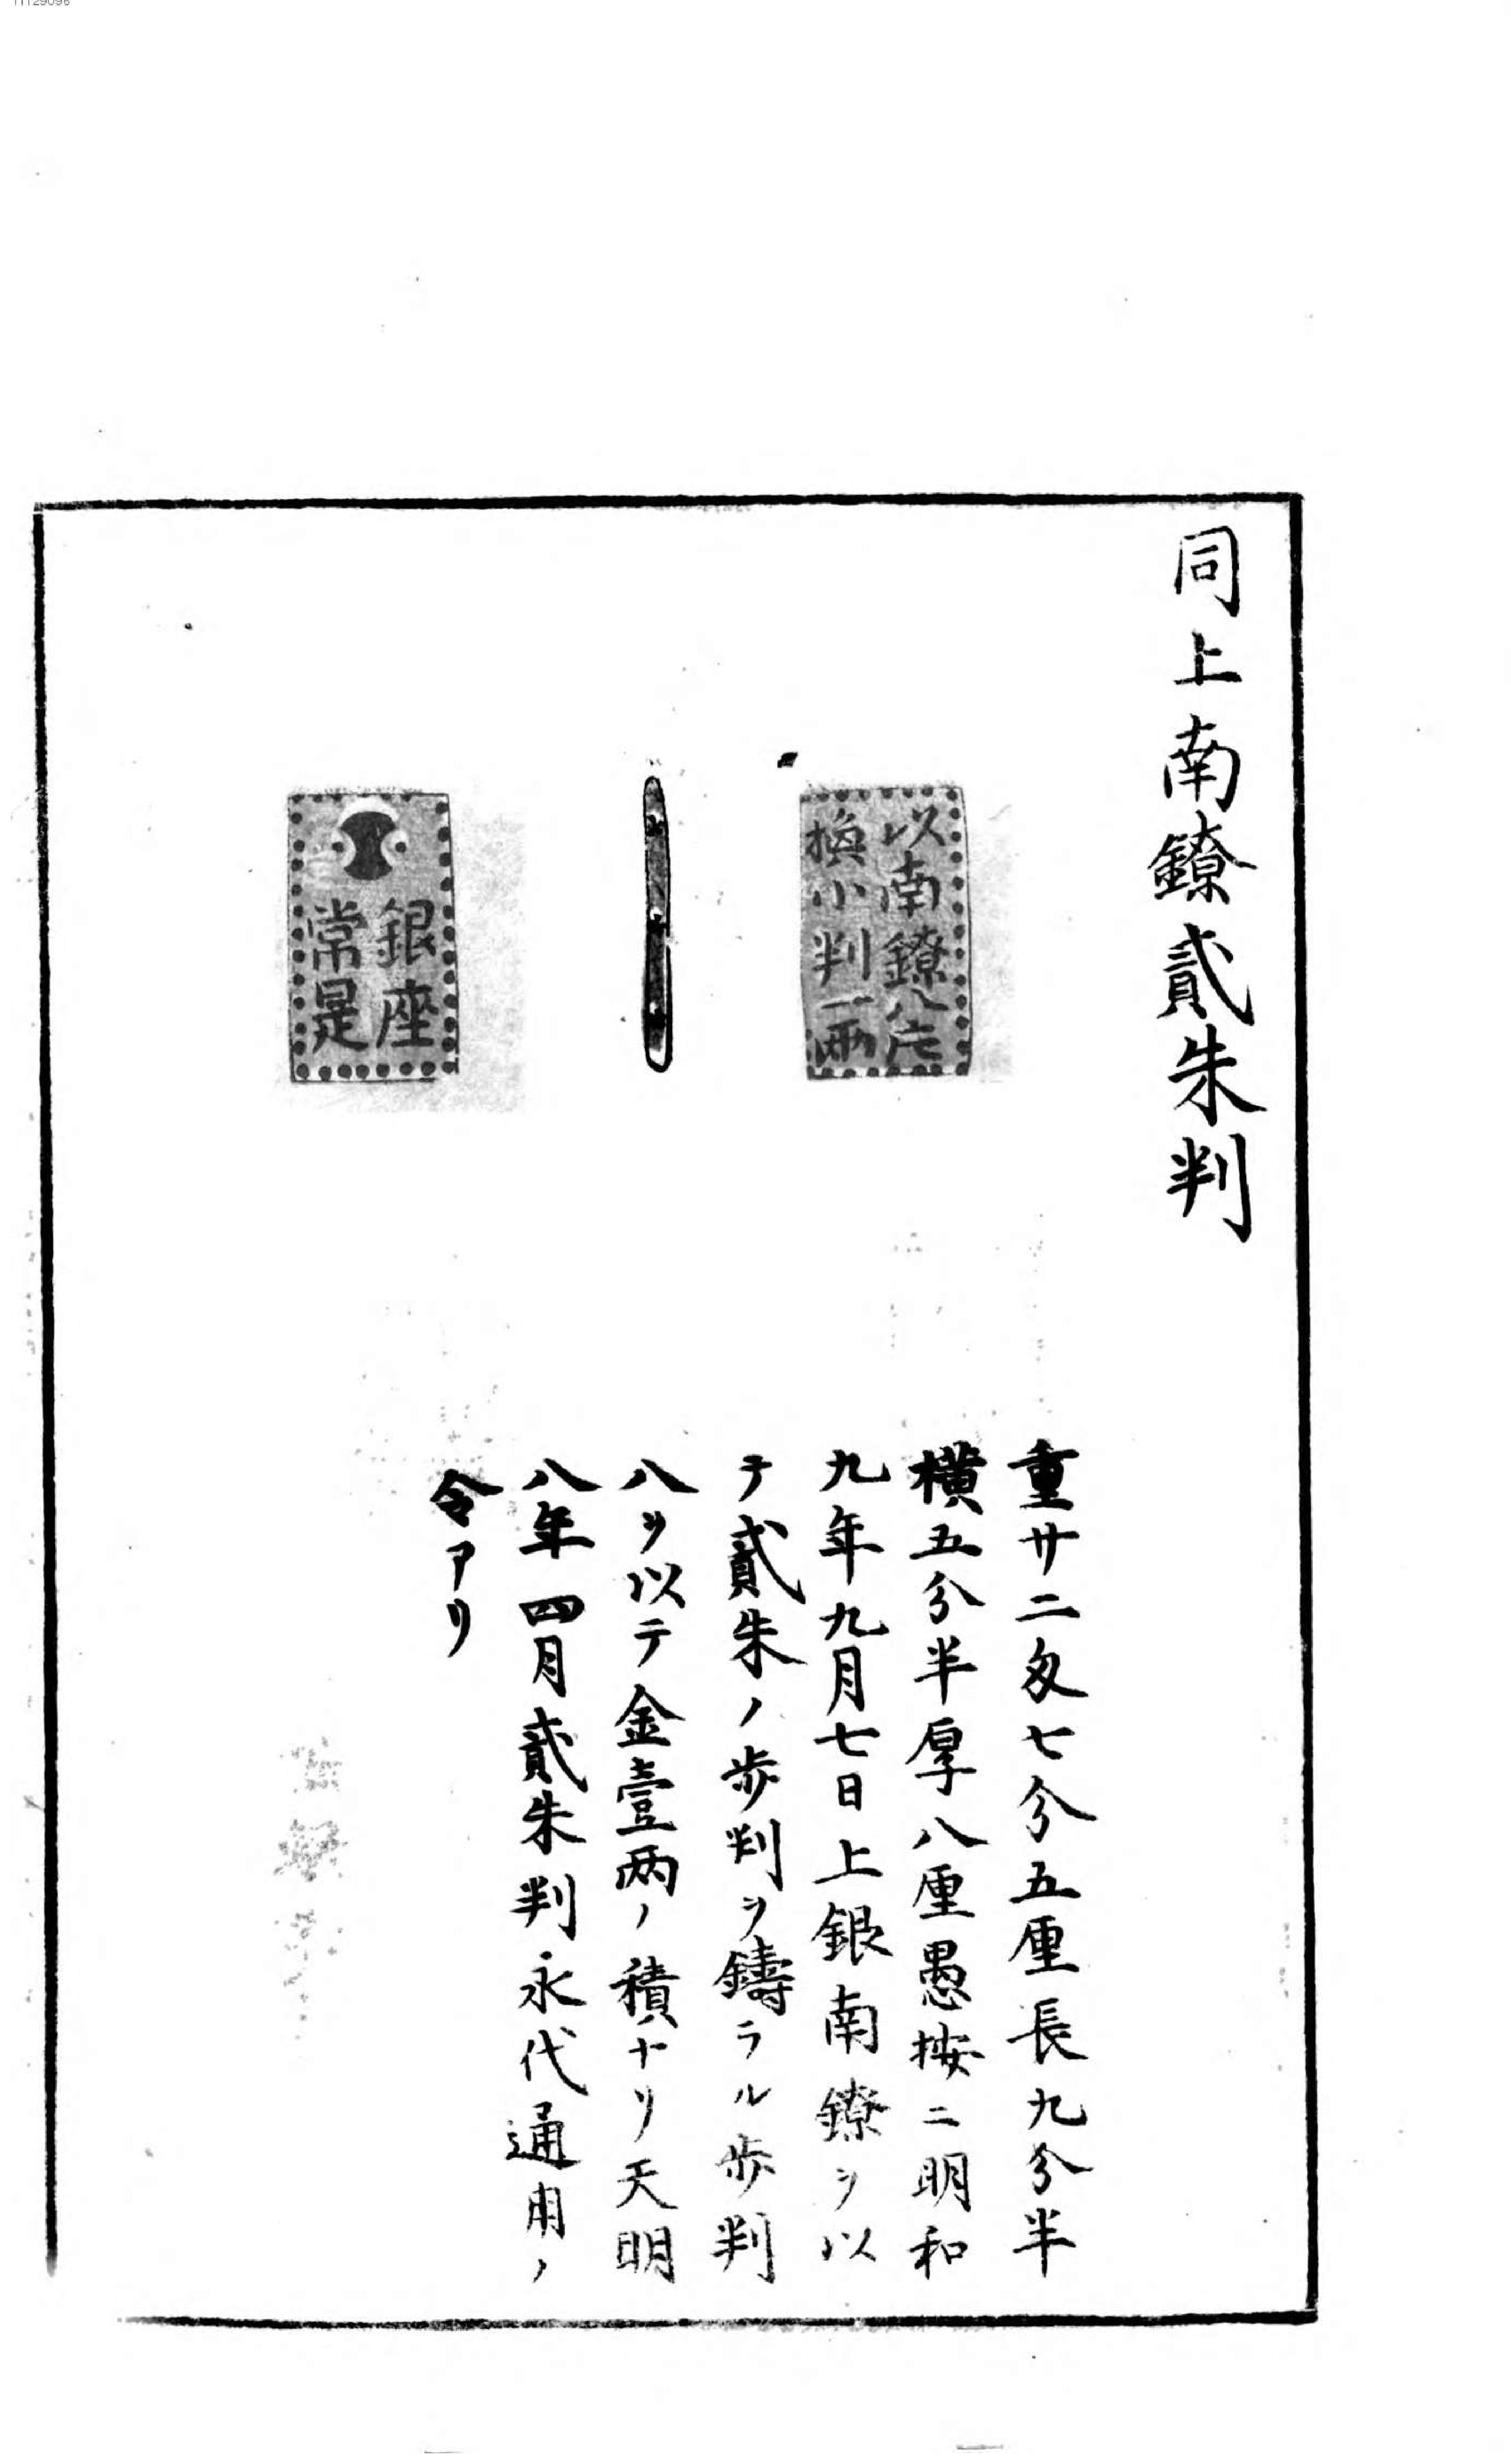 11129096
同上南鐐貳朱判
以南鐐八片
換小判一兩
銀座
常是
重廿二匁七分五厘長九分半
横五分半厚八厘愚按ニ明和
九年九月七日上銀南鐐ヲ以
テ貳朱ノ歩判ヲ鑄ラル歩判
八ヲ以テ金壹两ノ積ナリ天明
八年四月貳朱判永代通用ノ
令アリ